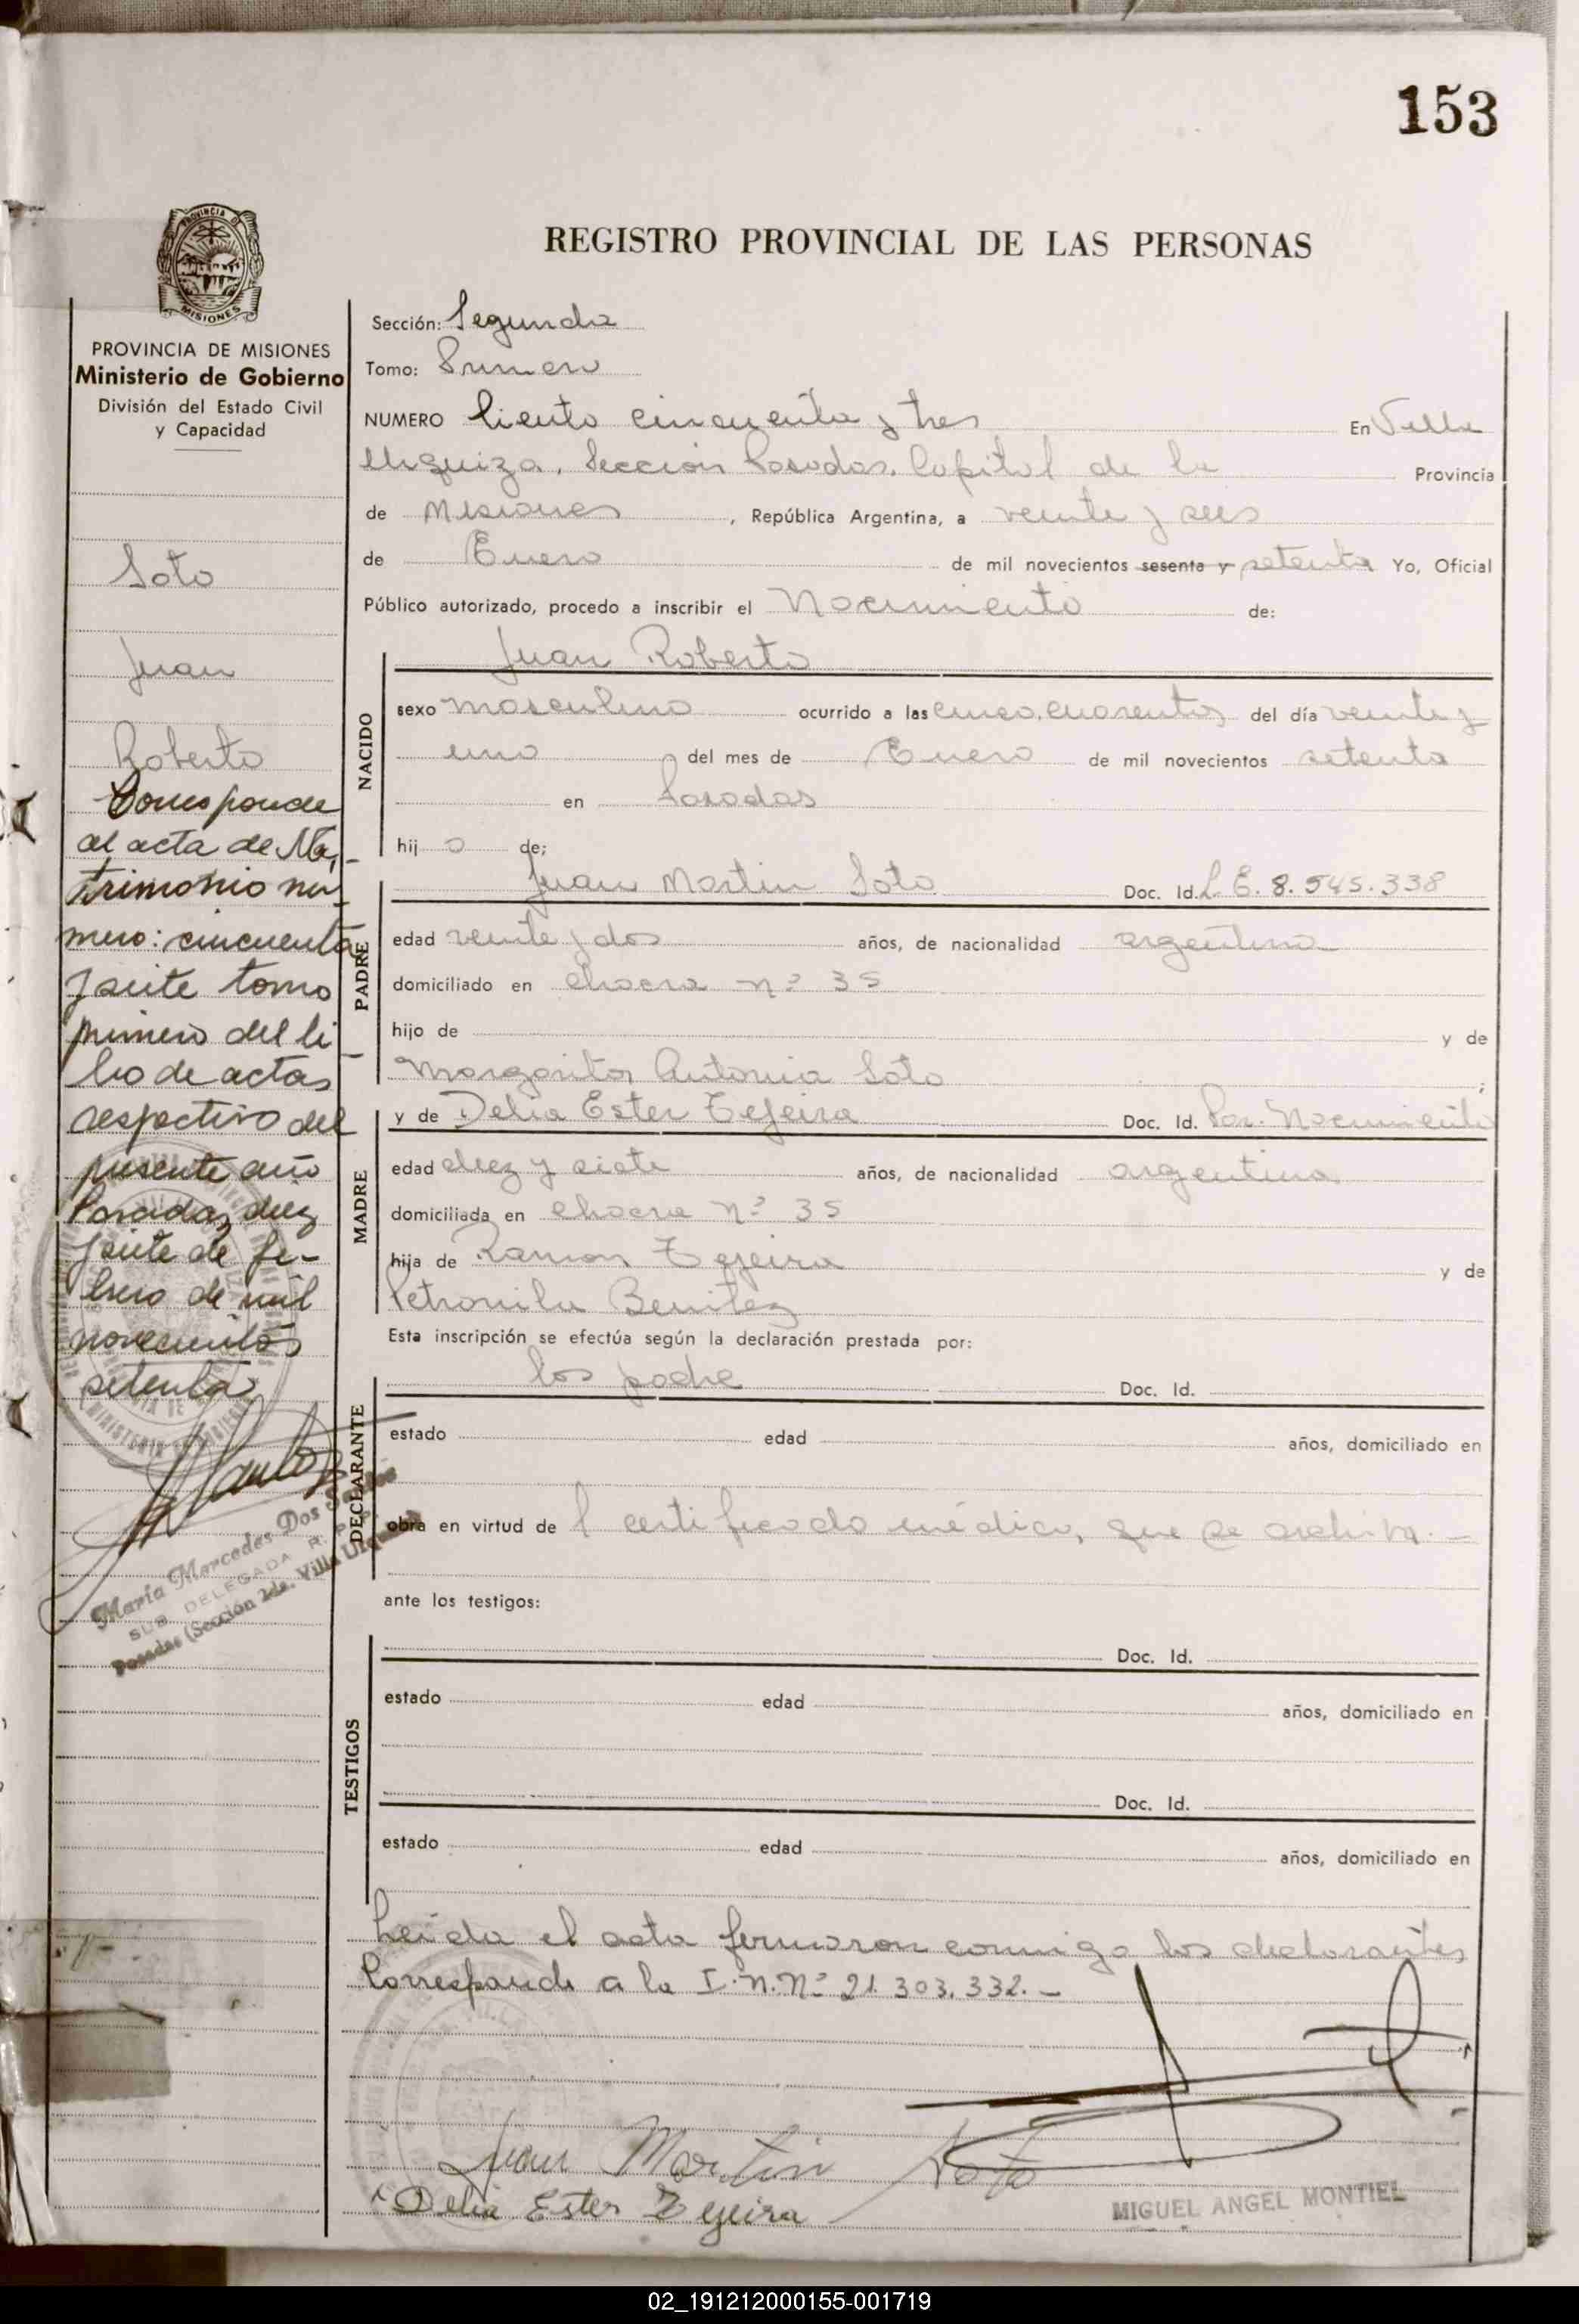 153
PROVINCIA DE
MISIONES
REGISTRO PROVINCIAL DE LAS PERSONAS
PROVINCIA DE MISIONES
Ministerio de Gobierno
División del Estado Civil
y Capacidad
Soto
Juan
Roberto
Corresponde
al acta de Ma,
trimonio nu
mero: cincuenta
y siete tomo
primero del li
bro de actas
respectivo del
presente año
Posadas, diez
y siete de fe-
brero de mil
novecientos
setenta
María Mercedes Dos Santos
SUB DELEGADA R. P. P.
Posadas (Sección 2da. Villa Urquiza)
Sección: Segunda
Tomo: Primero
NUMERO Ciento cincuenta y tres En Villa
Urquiza, Sección Posadas, Capital de la Provincia
de Misiones, República Argentina, a veinte y seis
de Enero de mil novecientos sesenta y setenta Yo, Oficial
Público autorizado, procedo a inscribir el Nacimiento de:
NACIDO
Juan Roberto
sexo masculino ocurrido a las cinco, cuarenta del día veinte y
uno del mes de Enero de mil novecientos setenta
en Posadas
hij o de;
PADRE
Juan Martin Soto Doc. Id. L. E. 8.545.338
edad veinte y dos años, de nacionalidad argentino
domiciliado en chacra nº 35
hijo de y de
Margarita Antonia Soto ;
MADRE
y de Delia Ester Tejeira Doc. Id. Par. Nacimiento
edad diez y siete años, de nacionalidad argentina
domiciliada en chacra nº 35
hija de Ramon Tejeira y de
Petronila Benitez
Esta inscripción se efectúa según la declaración prestada por:
DECLARANTE
los padre Doc. Id.
estado edad años, domiciliado en
obra en virtud de l certificado médico, que se archiva. -
ante los testigos:
TESTIGOS
Doc. Id.
estado edad años, domiciliado en
Doc. Id.
estado edad años, domiciliado en
Leida el acta firmaron conmigo los declarantes
Corresponde a la I.N.Nº 21.303.332. -
Juan Martin Soto
Delia Ester Tejeira
MIGUEL ANGEL MONTIEL
02_191212000155-001719